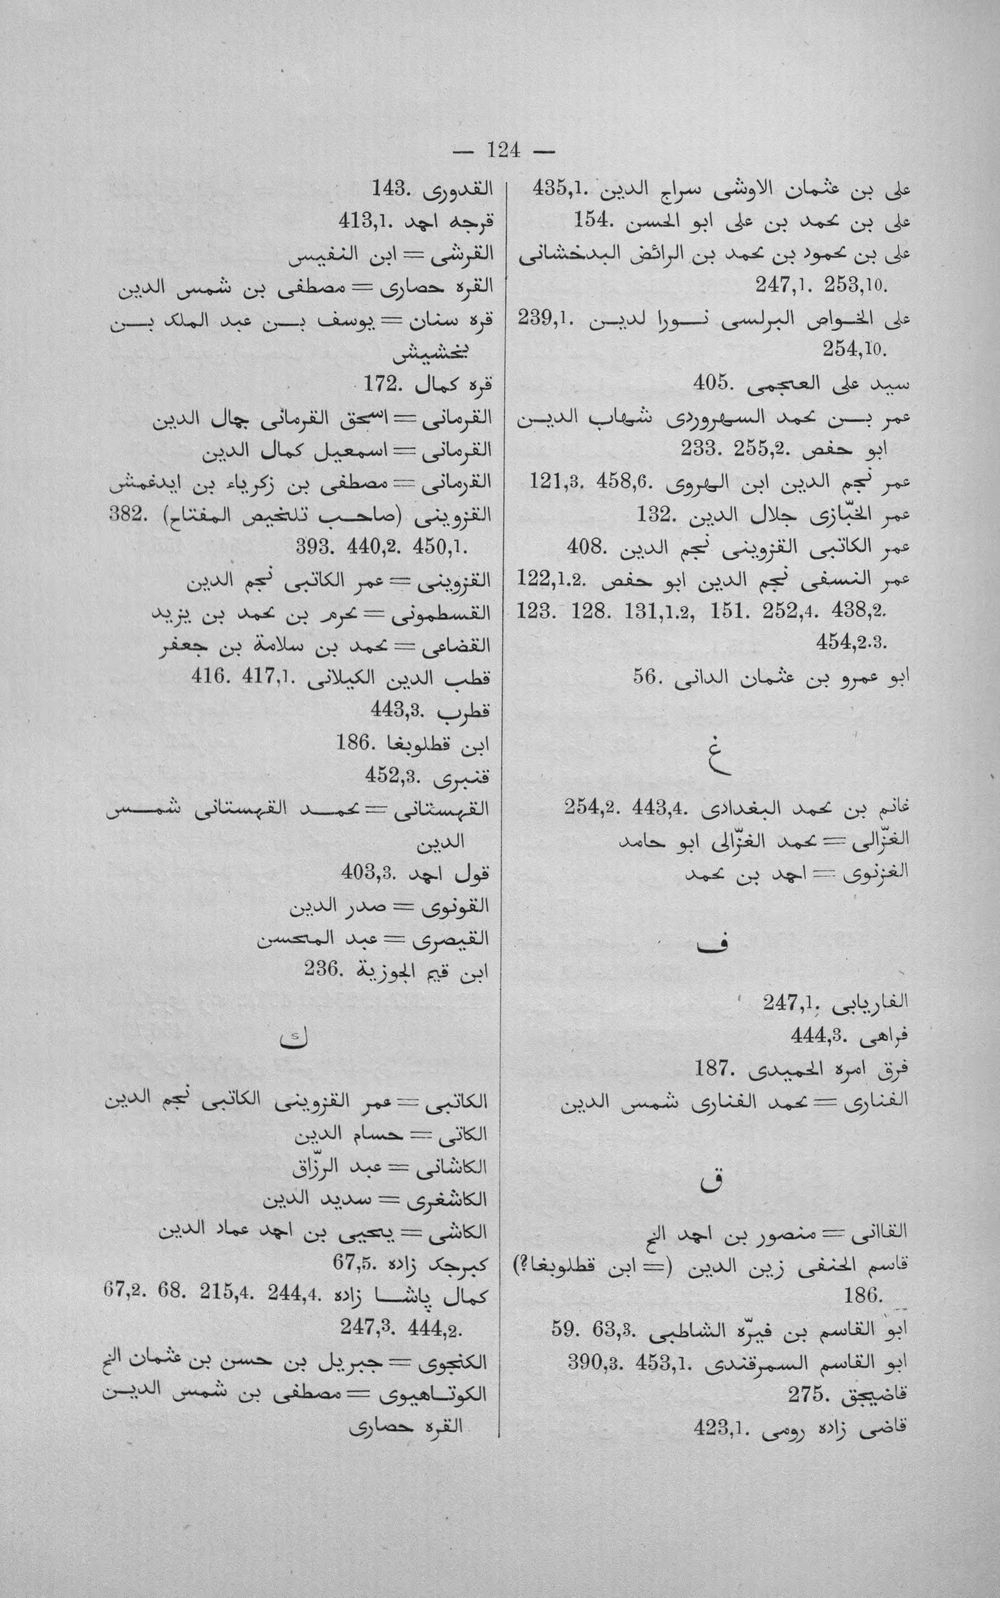 — 124 —
على بن عثمان الاوشى سراج الدين .435,1
على بن محمد بن على ابو الحسن .154
على بن محمود بن محمد بن الرائض البدخشانى
247,1. 253,10.
على الخواص البرلسى نورا لدين .239,1
254,10.
سيد على العجمى .405
عمر بن محمد السهروردى شهاب الدين
ابو حفص .233. 255,2
عمر نجم الدين ابن الهروى .121,3. 458,6
عمر الخبّازى جلال الدين .132
عمر الكاتبى القزوينى نجم الدين .408
عمر النسفى نجم الدين ابو حفص .122,1.2
123. 128. 131,1.2, 151. 252,4. 438,2.
454,2.3.
ابو عمرو بن عثمان الدانى .56
غ
غانم بن محمد البغدادى .254,2. 443,4
الغزّالى = محمد الغزّالى ابو حامد
الغزنوى = احمد بن محمد
ف
الفاريابى .247,1
فراهى .444,3
فرق امره الحميدى .187
الفنارى = محمد الفنارى شمس الدين
ق
القاانى = منصور بن احمد الخ
قاسم الحنفى زين الدين (= ابن قطلوبغا؟)
186.
ابو القاسم بن فيرّه الشاطبى .59. 63,3
ابو القاسم السمرقندى .390,3. 453,1
قاضيجق .275
قاضى زاده رومى .423,1
القدورى .143
قرجه احمد .413,1
القرشى = ابن النفيس
القره حصارى = مصطفى بن شمس الدين
قره سنان = يوسف بن عبد الملك بن
بخشيش
قره كمال .172
القرمانى = اسحق القرمانى جمال الدين
القرمانى = اسمعيل كمال الدين
القرمانى = مصطفى بن زكرياء بن ايدغمش
القزوينى (صاحب تلخيص المفتاح) .382
393. 440,2. 450,1.
القزوينى = عمر الكاتبى نجم الدين
القسطمونى = محرم بن محمد بن يزيد
القضاعى = محمد بن سلامة بن جعفر
قطب الدين الكيلانى .416. 417,1
قطرب .443,3
ابن قطلوبغا .186
قنبرى .452,3
القهستانى = محمد القهستانى شمس
الدين
قول احمد .403,3
القونوى = صدر الدين
القيصرى = عبد المحسن
ابن قيم الجوزية .236
ك
الكاتبى = عمر القزوينى الكاتبى نجم الدين
الكاتى = حسام الدين
الكاشانى = عبد الرزّاق
الكاشغرى = سديد الدين
الكاشى = يحيى بن احمد عماد الدين
كبرجك زاده .67,5
كمال پاشا زاده .67,2. 68. 215,4. 244,4
247,3. 444,2.
الكنجوى = جبريل بن حسن بن عثمان الخ
الكوتاهيوى = مصطفى بن شمس الدين
القره حصارى